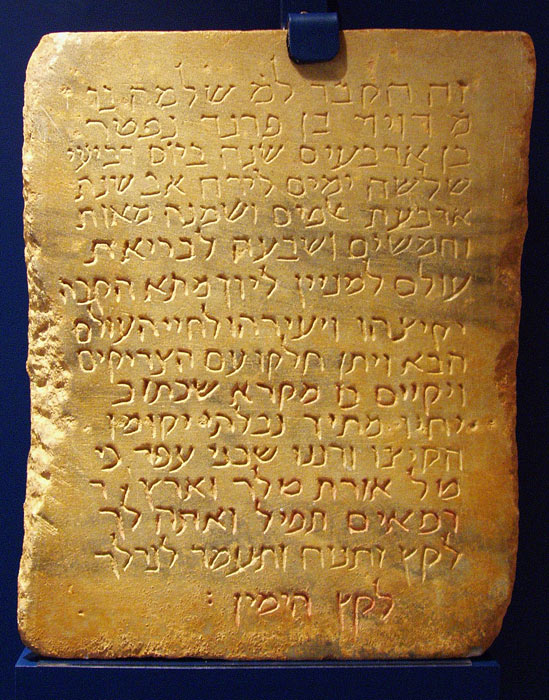 זה הקבר למ שלמה בן
מ דויד בן פרנך נפטר
בן ארבעים שנה ביום רביעי
שלשה ימים לירח אב שנת
ארבעת ﭏפים ושמנה מאות
וחמשים ושבעה לבריאת
עולם למניין ליון מתא הקבה
יקיצהו ויעירהו לחיי העולם
הבא ויתן חלקו עם הצדיקים
ויקויים בו מקרא שכתוב
יחיו מתיך נבלתי יקומון
הקיצו ורננו שכני עפר כי
טל אורת טלך וארץ ר
רפאים תפיל ואתה לך
לקץ ותנוח ותעמד לגרלך
לקץ הימין :